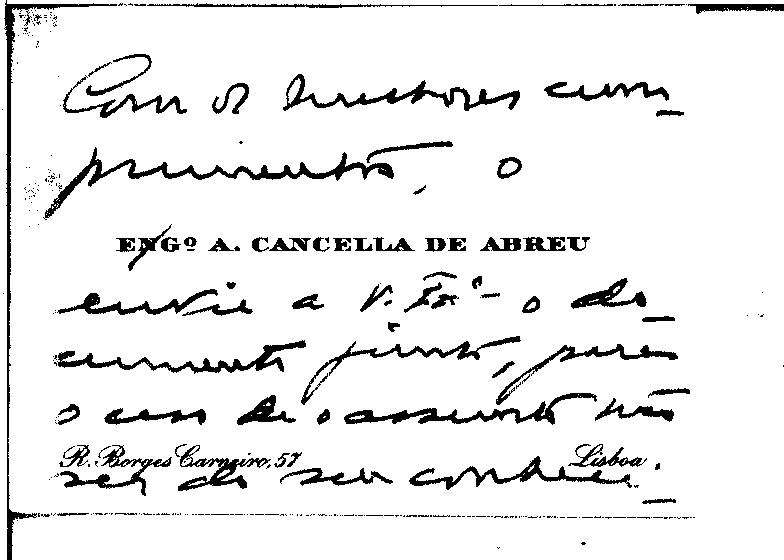 Com os melhores cum-
primentos, o
ENGº A. CANCELLA DE ABREU
envia a V. Exª o do-
cumento junto, para
o caso de o assunto não
R. Borges Carneiro, 57 Lisboa
ser do seu conheci-